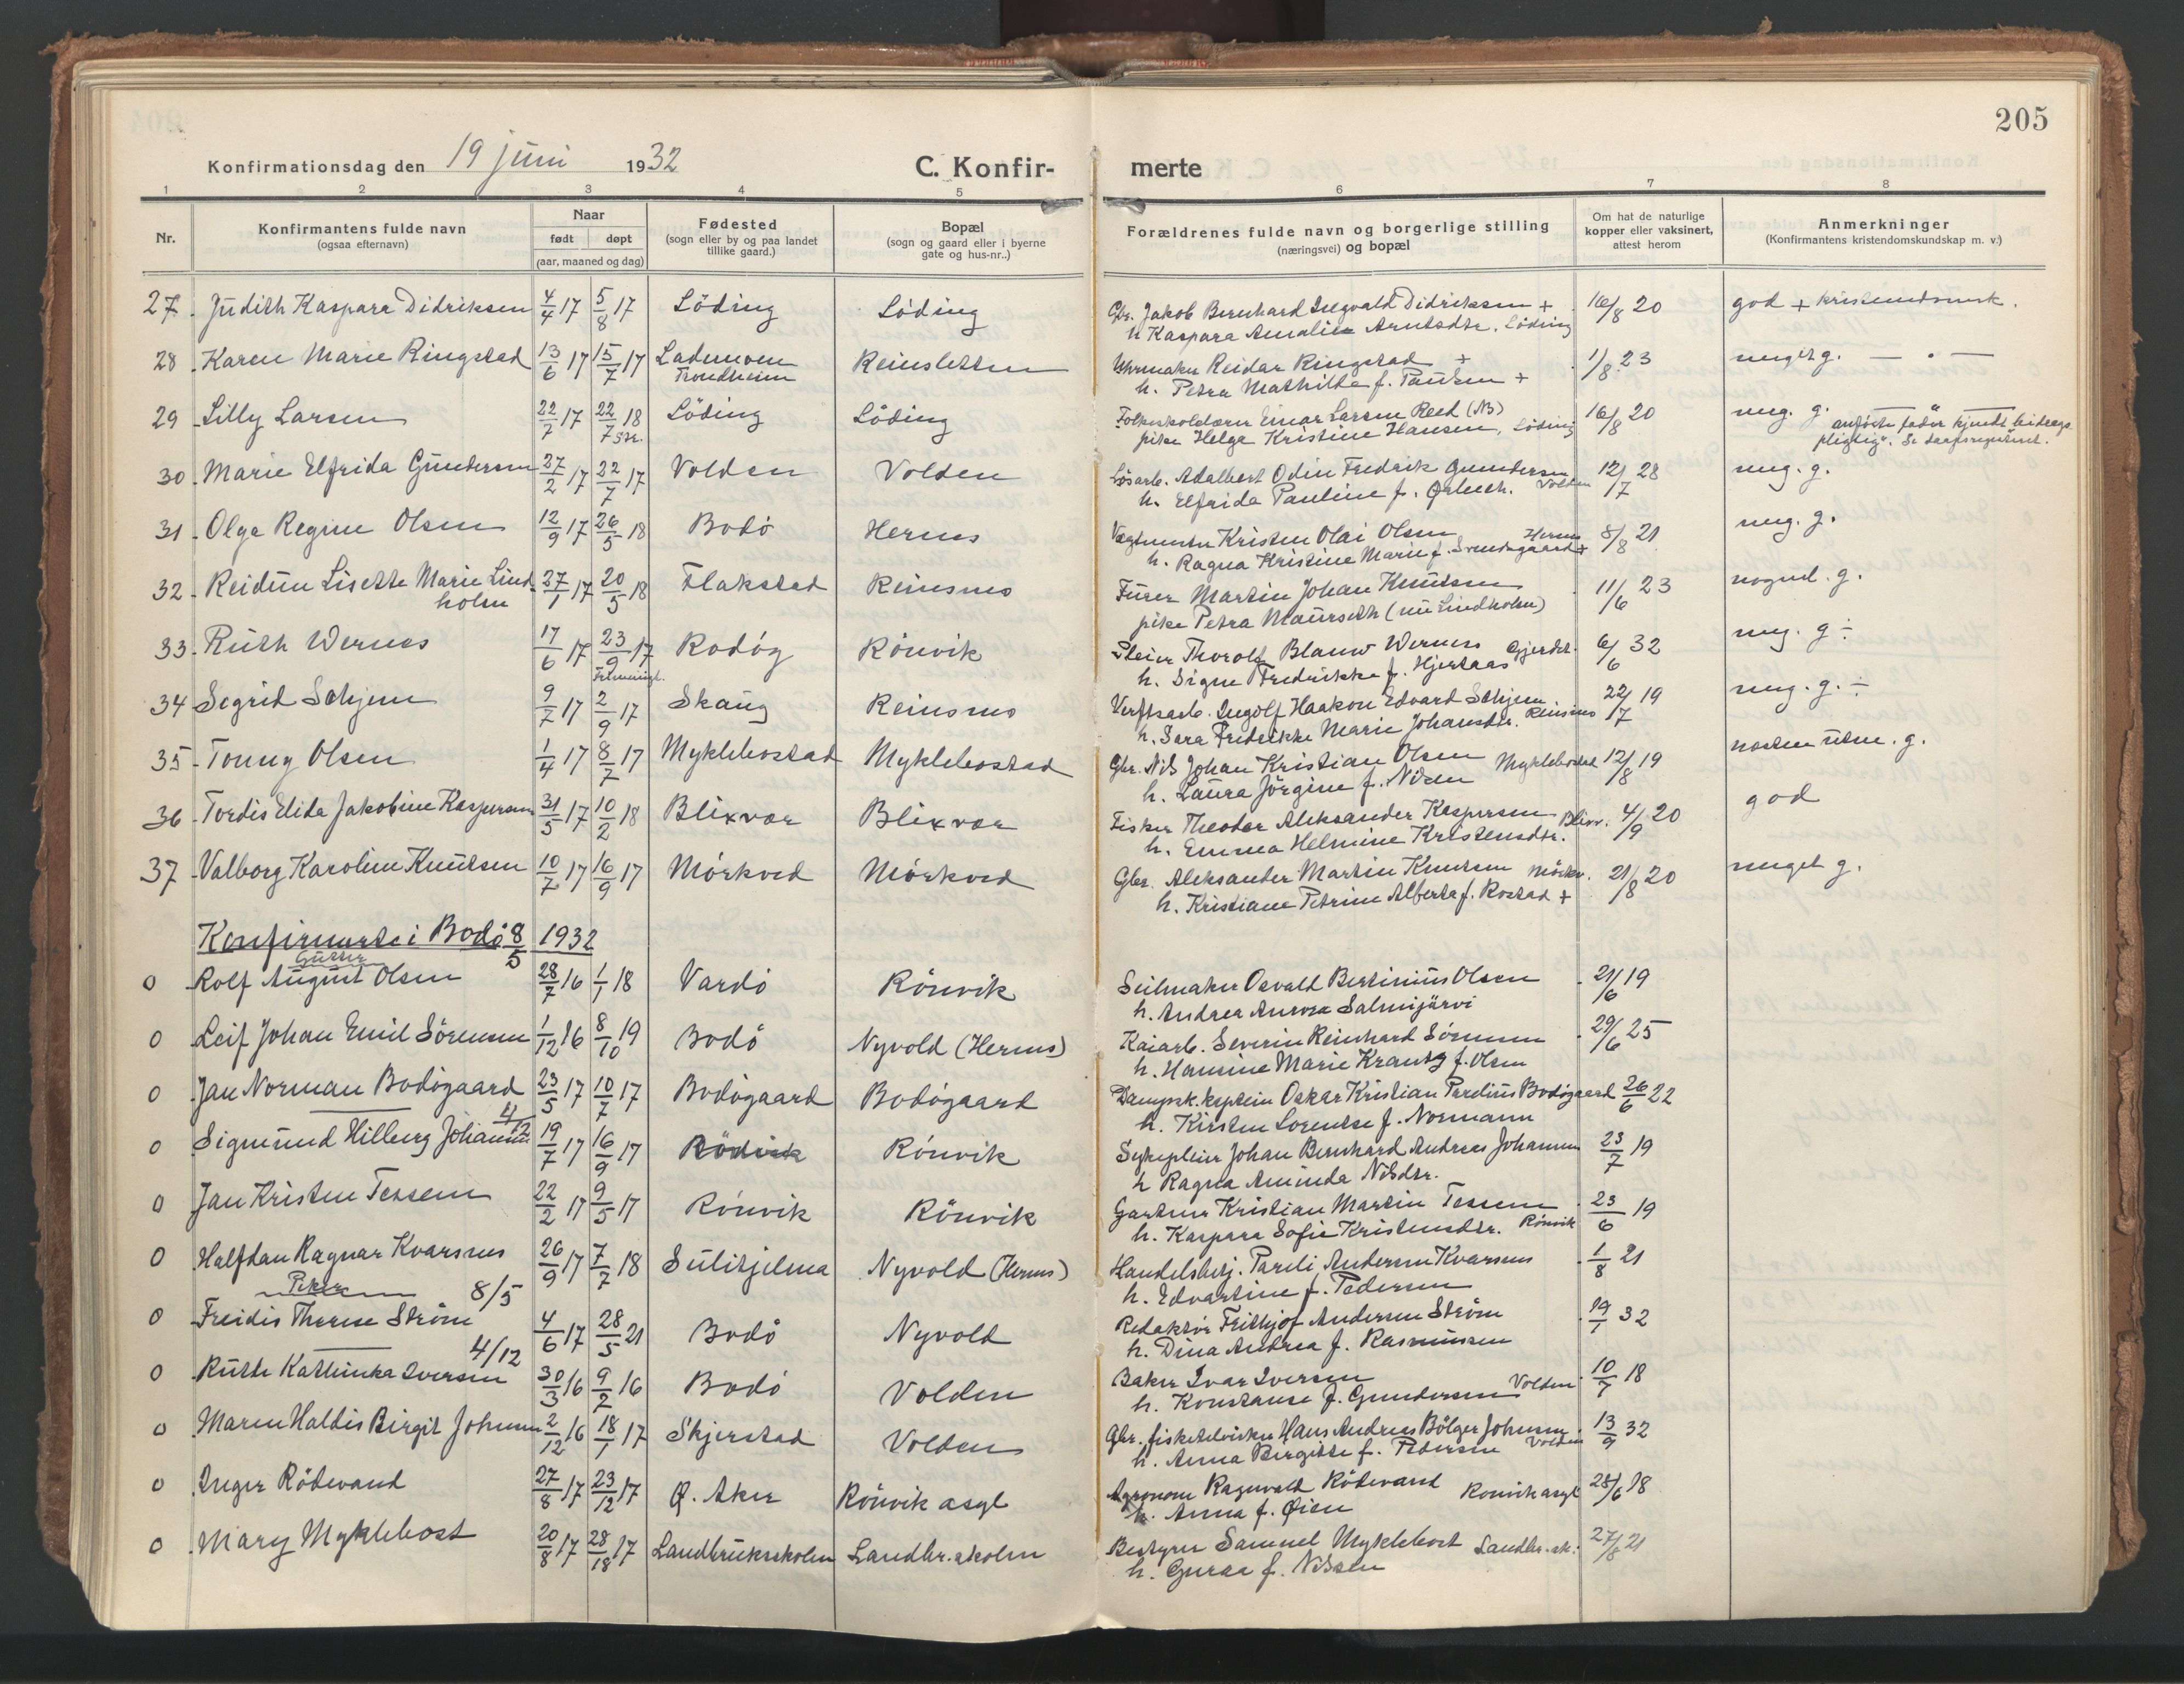 205
Konfirmationsdag den 19 juni 1932
C. Konfir-
merte
1 2 3 4 5 6 7 8
Nr.
Konfirmantens fulde navn
(ogsaa efternavn)
Naar
født døpt
(aar, maaned og dag)
Fødested
(sogn eller by og paa landet
tillike gaard.)
Bopæl
(sogn og gaard eller i byerne
gate og hus-nr..)
Forældrenes fulde navn og borgerlige stilling
(næringsvei) og bopæl
Om hat de naturlige
kopper eller vaksinert,
attest herom
Anmerkninger
(Konfirmantens kristendomskundskap m. v.)
27. Judith Kaspara Didriksen 4/4 17 5/8 17 Löding Löding Gbr. Jakob Bernhard Ingvald Didriksen + 16/8 20 god +
h Kaspara Amalie Arntsdtr. Löding
28 Karen Marie Ringstad 13/6 17 15/7 17 Lademoen Reinsletten Uhrmaker Reidar Ringstad + 1/8 23 meget g. — . —
Trondheim h. Petra Mathilde f. Paulsen +
29 Lilly Larsen 22/7 17 22/7 18 Löding Löding Folkeskolelærer Einar Larsen Reed (N3) 16/8 20 meg. g.
pike Helga Kristine Hansen, Löding
30. Marie Elfrida Gundersen 27/2 17 22/7 17 Volden Volden Lösarb. Adalbert Odin Fredrik Gundersen Volden 12/7 28 meg. g.
h. Elfrida Pauline f.
31. Olga Regine Olsen 12/9 17 26/5 18 Bodö Hernes Kristen Olai Olsen Hernes 8/8 21 meg. g.
h. Ragna Kristine Marie f. Svendsgaard +
32. Reidun Lisette Marie Lind- 27/1 17 20/5 18 Flakstad Reinsmo Furer Martin Johan Knutsen 11/6 23 nogenl. g.
holm pike Petra Maurseth (nu Lindholm)
33. Ruth Wernes 17/6 17 23/9 17 Rodöy Rönvik Pleier Thorolf Blauw Wernes Gjerdet 6/6 32 meg. g ÷
h. Signe Fredrikke f. Hjertaas
34 Segrid Schjem 9/7 17 2/9 17 Skaug Reinsmo Verftsarb. Ingolf Haakon Edvard Schjem 22/7 19 meg. g. ÷
h. Sara Fredrikke Marie Johansdtr. Reinsmo
35 Tonny Olsen 1/4 17 8/7 17 Myklebostad Myklebostad Gbr. Nils Johan Kristian Olsen Myklebostad 12/8 19 nesten utm. g.
h. Laura Jörgine f. Nilsen
36. Tordis Elida Jakobine Kaspersen 31/5 17 10/2 18 Blixvær Blixvær Fisker Theodor Aleksander Kaspersen Blixv. 4/9 20 god
h. Emma Helmine Kristensdtr.
37 Valborg Karoline Knutsen 10/7 17 16/9 17 Mörkved Mörkved Gbr. Aleksander Martin Knutsen Mörkv. 21/8 20 meget g.
h. Kristiane Petrine Alberta f. Rostad +
Konfirmerte i Bodö 8/5 1932
Gutter
0 Rolf August Olsen 28/7 16 1/1 18 Vardö Rönvik Seilmaker Osvald Bertinius Olsen 21/6 19
h. Andrea Aurora Salmijärvi
0 Leif Johan Emil Sörensen 1/12 16 8/10 19 Bodö Nyvold (Hernes) Kaiarb. Severin Reinhard Sörensen 29/6 25
h. Hansine Marie Krantz f. Olsen
0 Jan Norman Bodögaard 23/5 17 10/7 17 Bodögaard Bodögaard Dampsk.kaptein Oskar Kristian Parelius Bodögaard 26/6 22
h. Kirsten Lorentse f. Normann
4/12
0 Sigmund Hilberg Johansen 19/7 17 16/9 17 Rönvik Sykepleier Johan Bernhard Andreas Johansen 23/7 19
h Ragna Aminda Nilsdtr.
0 Jan Kristen Tessem 22/2 17 9/5 17 Rönvik Rönvik Gartner Kristian Martin Tessem 23/6 19
h. Kaspara Sofie Kristensdtr. Rönvik
0 Halfdan Ragnar Kvarsnes 26/9 17 7/7 18 Sulitjelma Nyvold (Hernes) Handelsbetj. Pareli Andersen Kvarsnes 1/8 21
h. Edvardine f. Pedersen
Piker 8/5
0 Freidis Therese Ström 4/6 17 28/5 21 Bodö Nyvold Redaktör Frithjof Andersen Ström 19/1 32
h. Dina Andrea f. Rasmussen
4/12
0 Ruth Kathinka Iversen 30/3 16 9/7 16 Bodö Volden Baker Ivar Iversen 10/7 18
h. Konstanse f. Gundersen Volden
0 Maren Haldis Birgit Johnsen 2/12 16 18/1 17 Skjerstad Volden Gbr. Hans Andreas Bölger Johnsen 13/9 32
h. Anna Birgitte f. Pedersen Volden
0 Inger Rödevand 27/8 17 23/12 17 Ø. Aker Rönvik asyl Agronom Ragnvald Rödevand Rönvik asyl 28/6 18
h. Anna f. Øien
0 Mary Myklebost 20/8 17 28/18 17 Landbruksskolen Landbr.skolen Bestyrer Samuel Myklebost Landbr.sk. 27/8 21
h. Guraa f. Nilsen